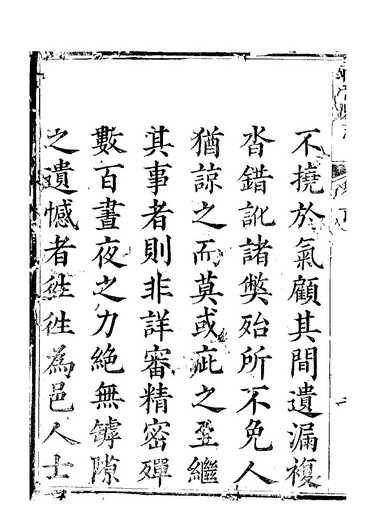 不撓於氣顧其間遺漏複
沓錯訛諸弊殆所不免人
猶諒之而莫或疵之至繼
其事者則非詳審精密殫
數百晝夜之力絶無罅隙
之遺憾者徃徃為邑人士